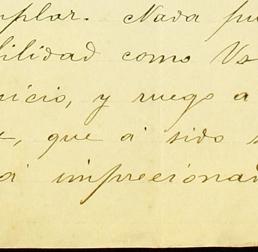 mplar. Nada pu
bilidad como Vs
nicio, y ruego a
, que á sido s
a imprecionar